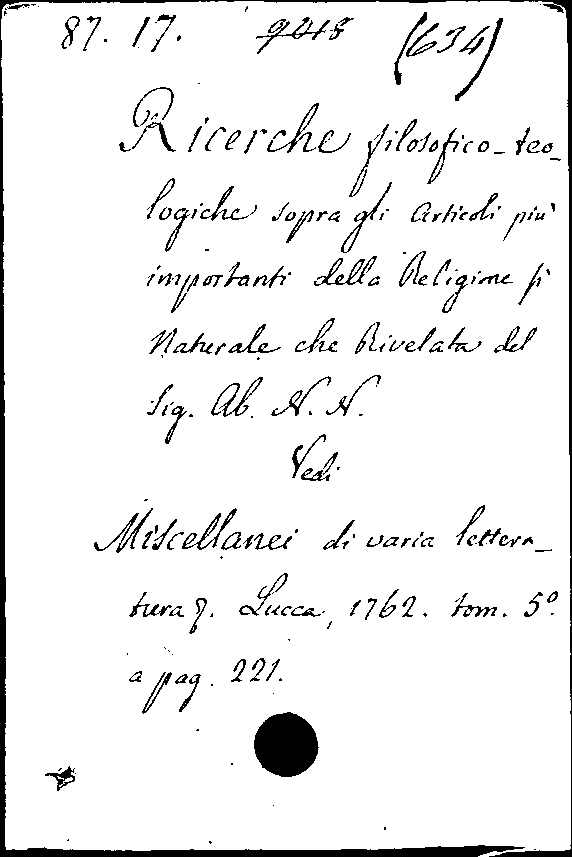 87. 17. 9218 (634)
Ricerche filosofico-teo-
logiche sopra gli Articoli più
importanti della Religione sì
Naturale che Rivelata del
Sig. Ab. N. N.
Vedi
Miscellanei di varia lettera-
tura. Lucca, 1762. tom. 5º.
a pag. 221.